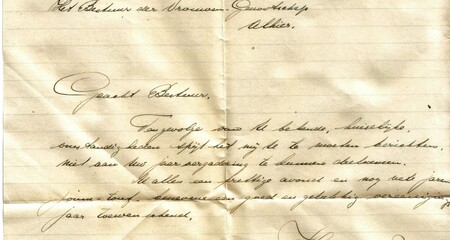 Het Bestuur der Vrouwen-Genootschap
Alhier.
Geacht Bestuur,
Tengevolge van de bekende, huiselijke
omstandigheden spijt het mij te moeten berichten,
niet aan Uw jaarvergadering te kunnen deelnemen.
U allen een prettige avond en nog vele jaren
benevens een goed en gelukkig
jaar toewenschend.